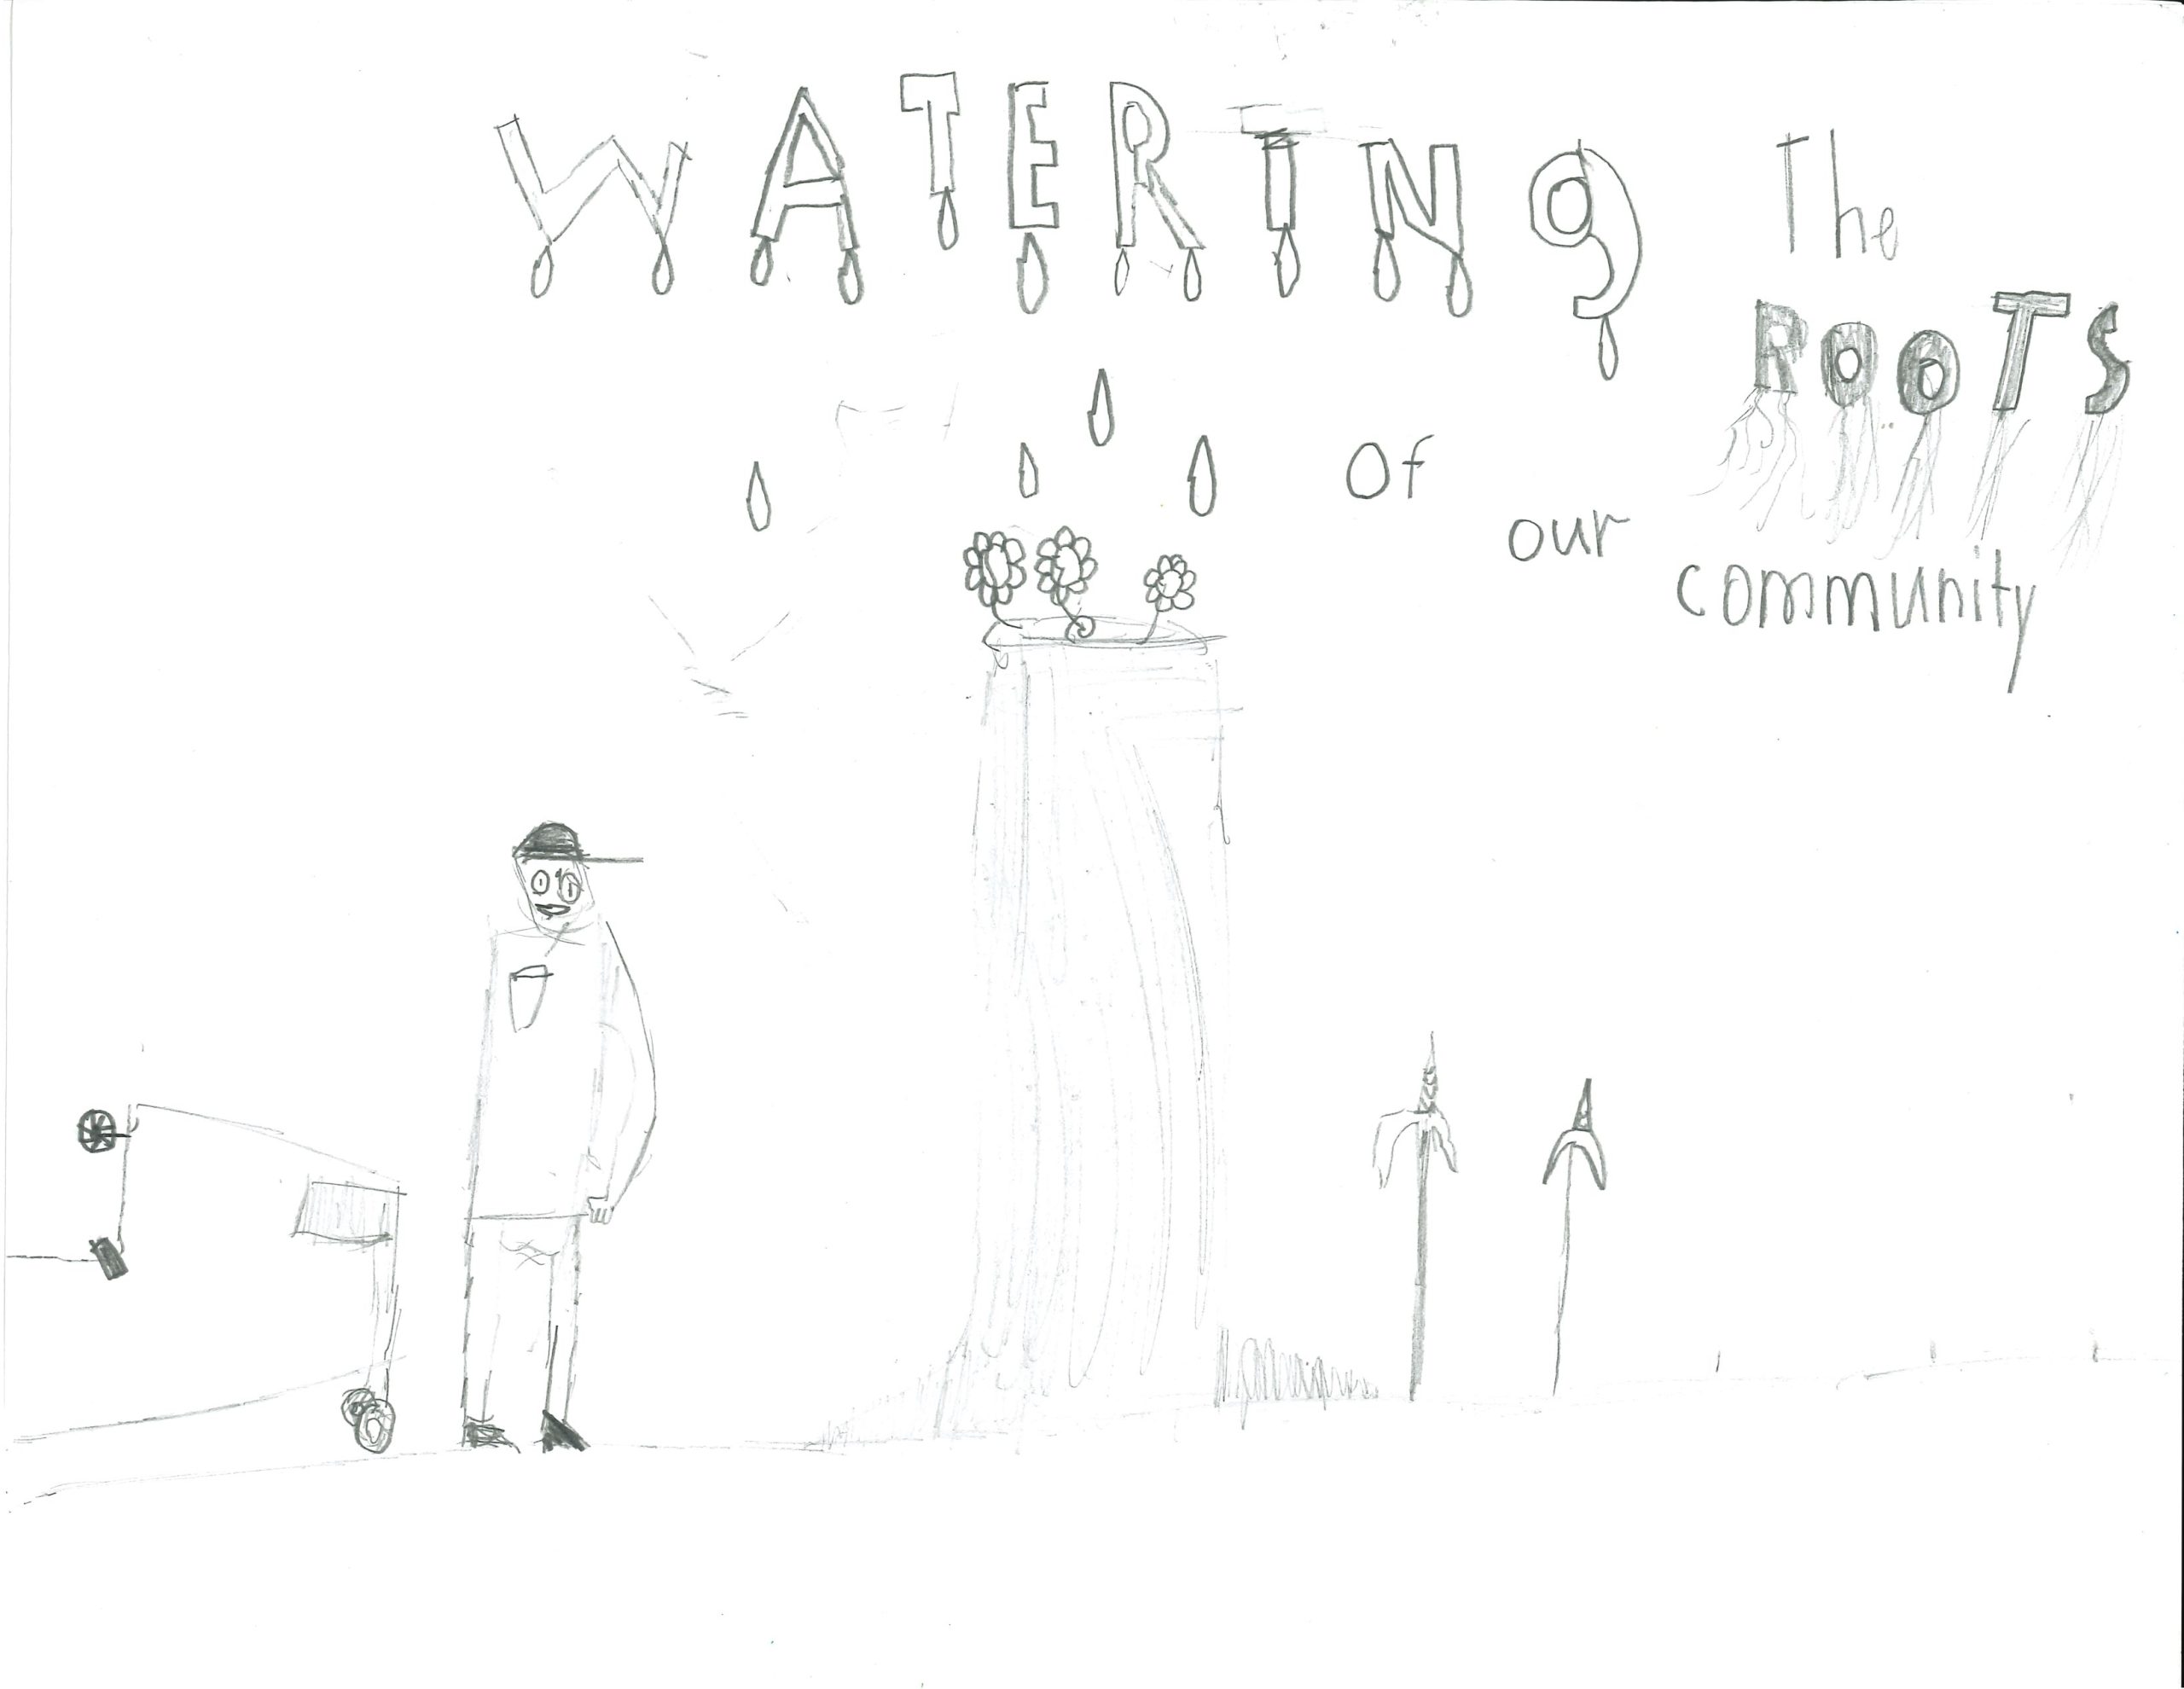 WATERINg The
ROOTS
Of
our
community